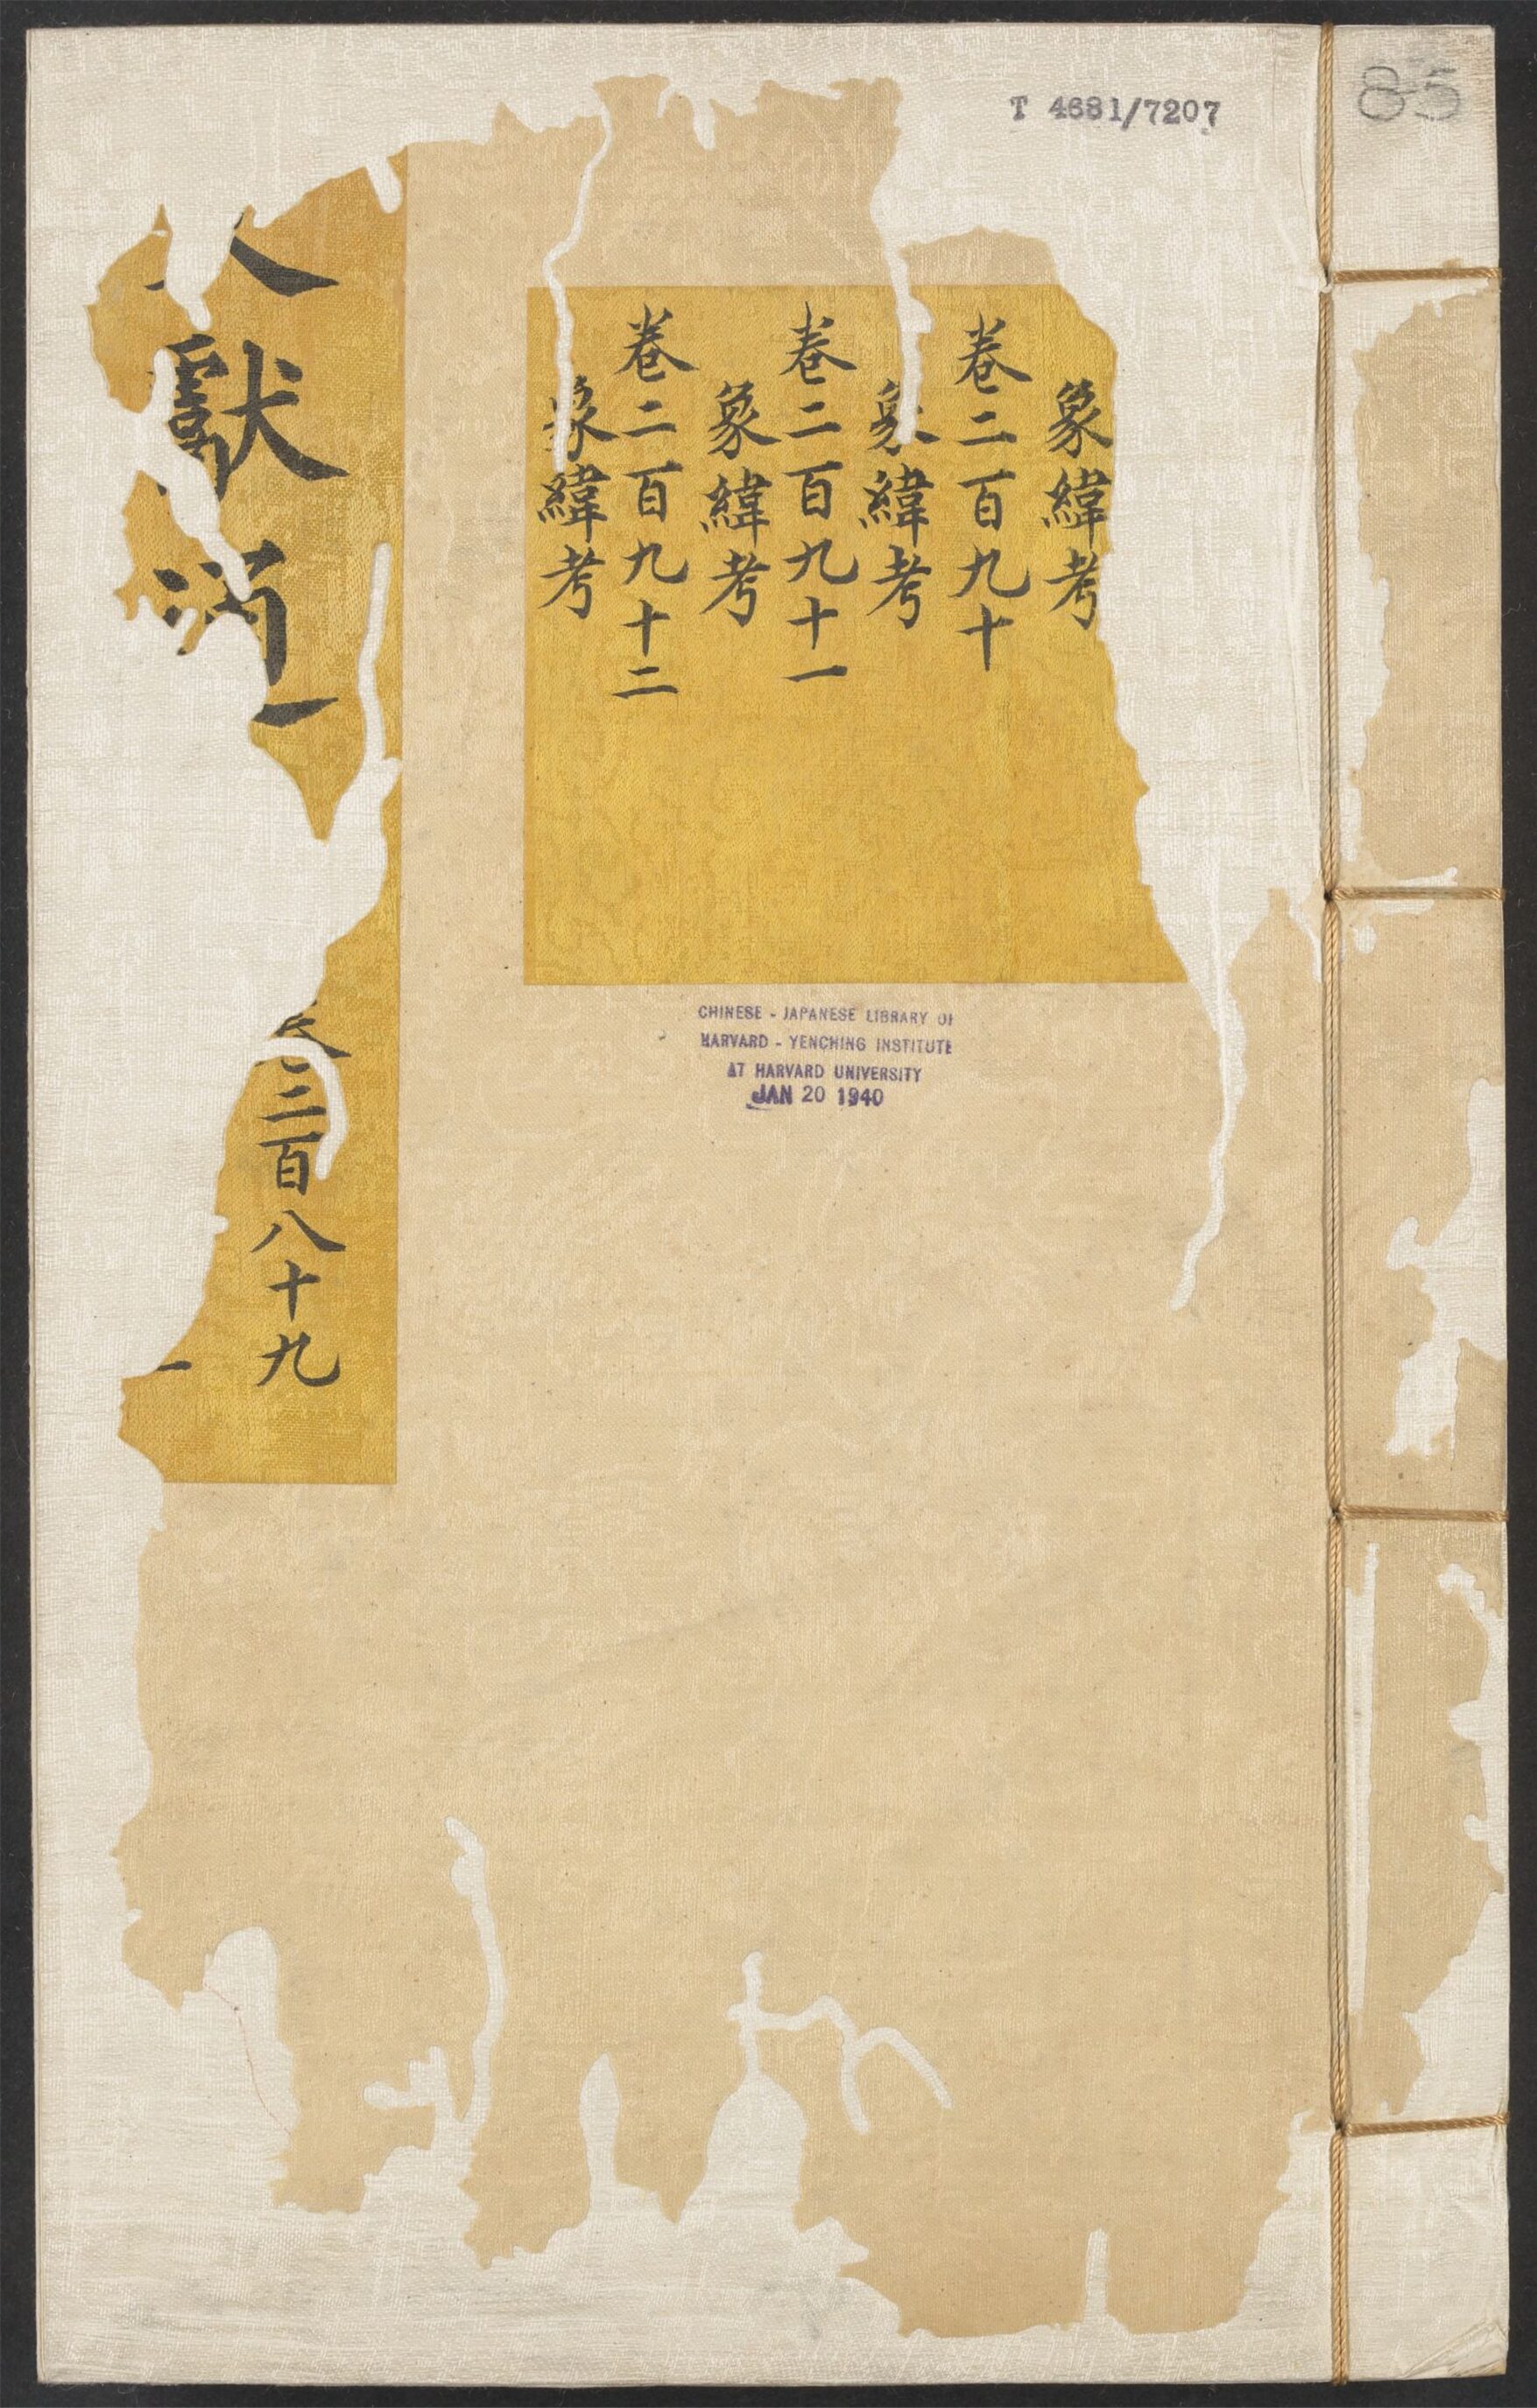 T 4681/7207
85
象緯考
卷二百九十
象緯考
卷二百九十一
象緯考
卷二百九十二
象緯考
獻
二百八十九
CHINESE - JAPANESE LIBRARY OF
HARVARD - YENCHING INSTITUTE
AT HARVARD UNIVERSITY
JAN 20 1940